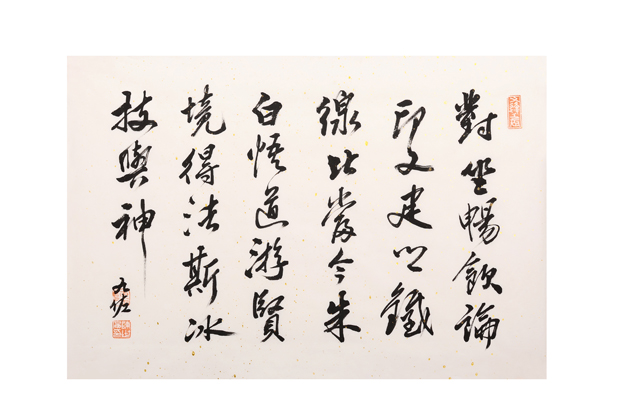 對坐暢飲論
印文建心鐵
線比當今朱
白悟道游賢
境得法斯冰
技與神
九佐